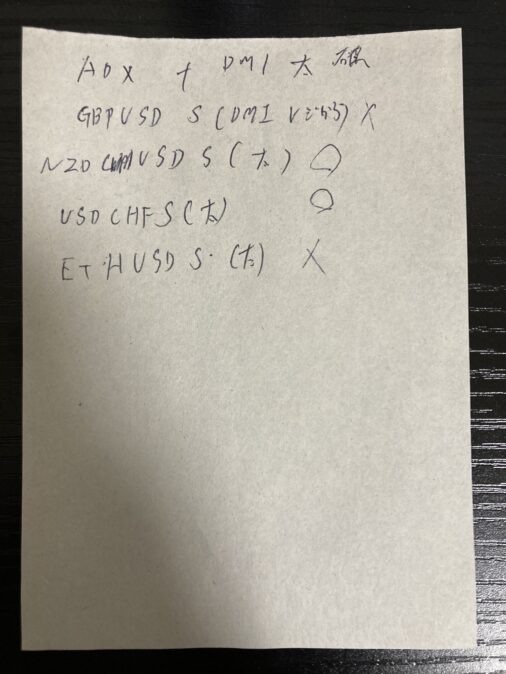 ADX + DMI 太
GBPUSD S (DMI X
NZD USD S (太) ○
USDCHF S (太) ○
ETHUSD S (太) X